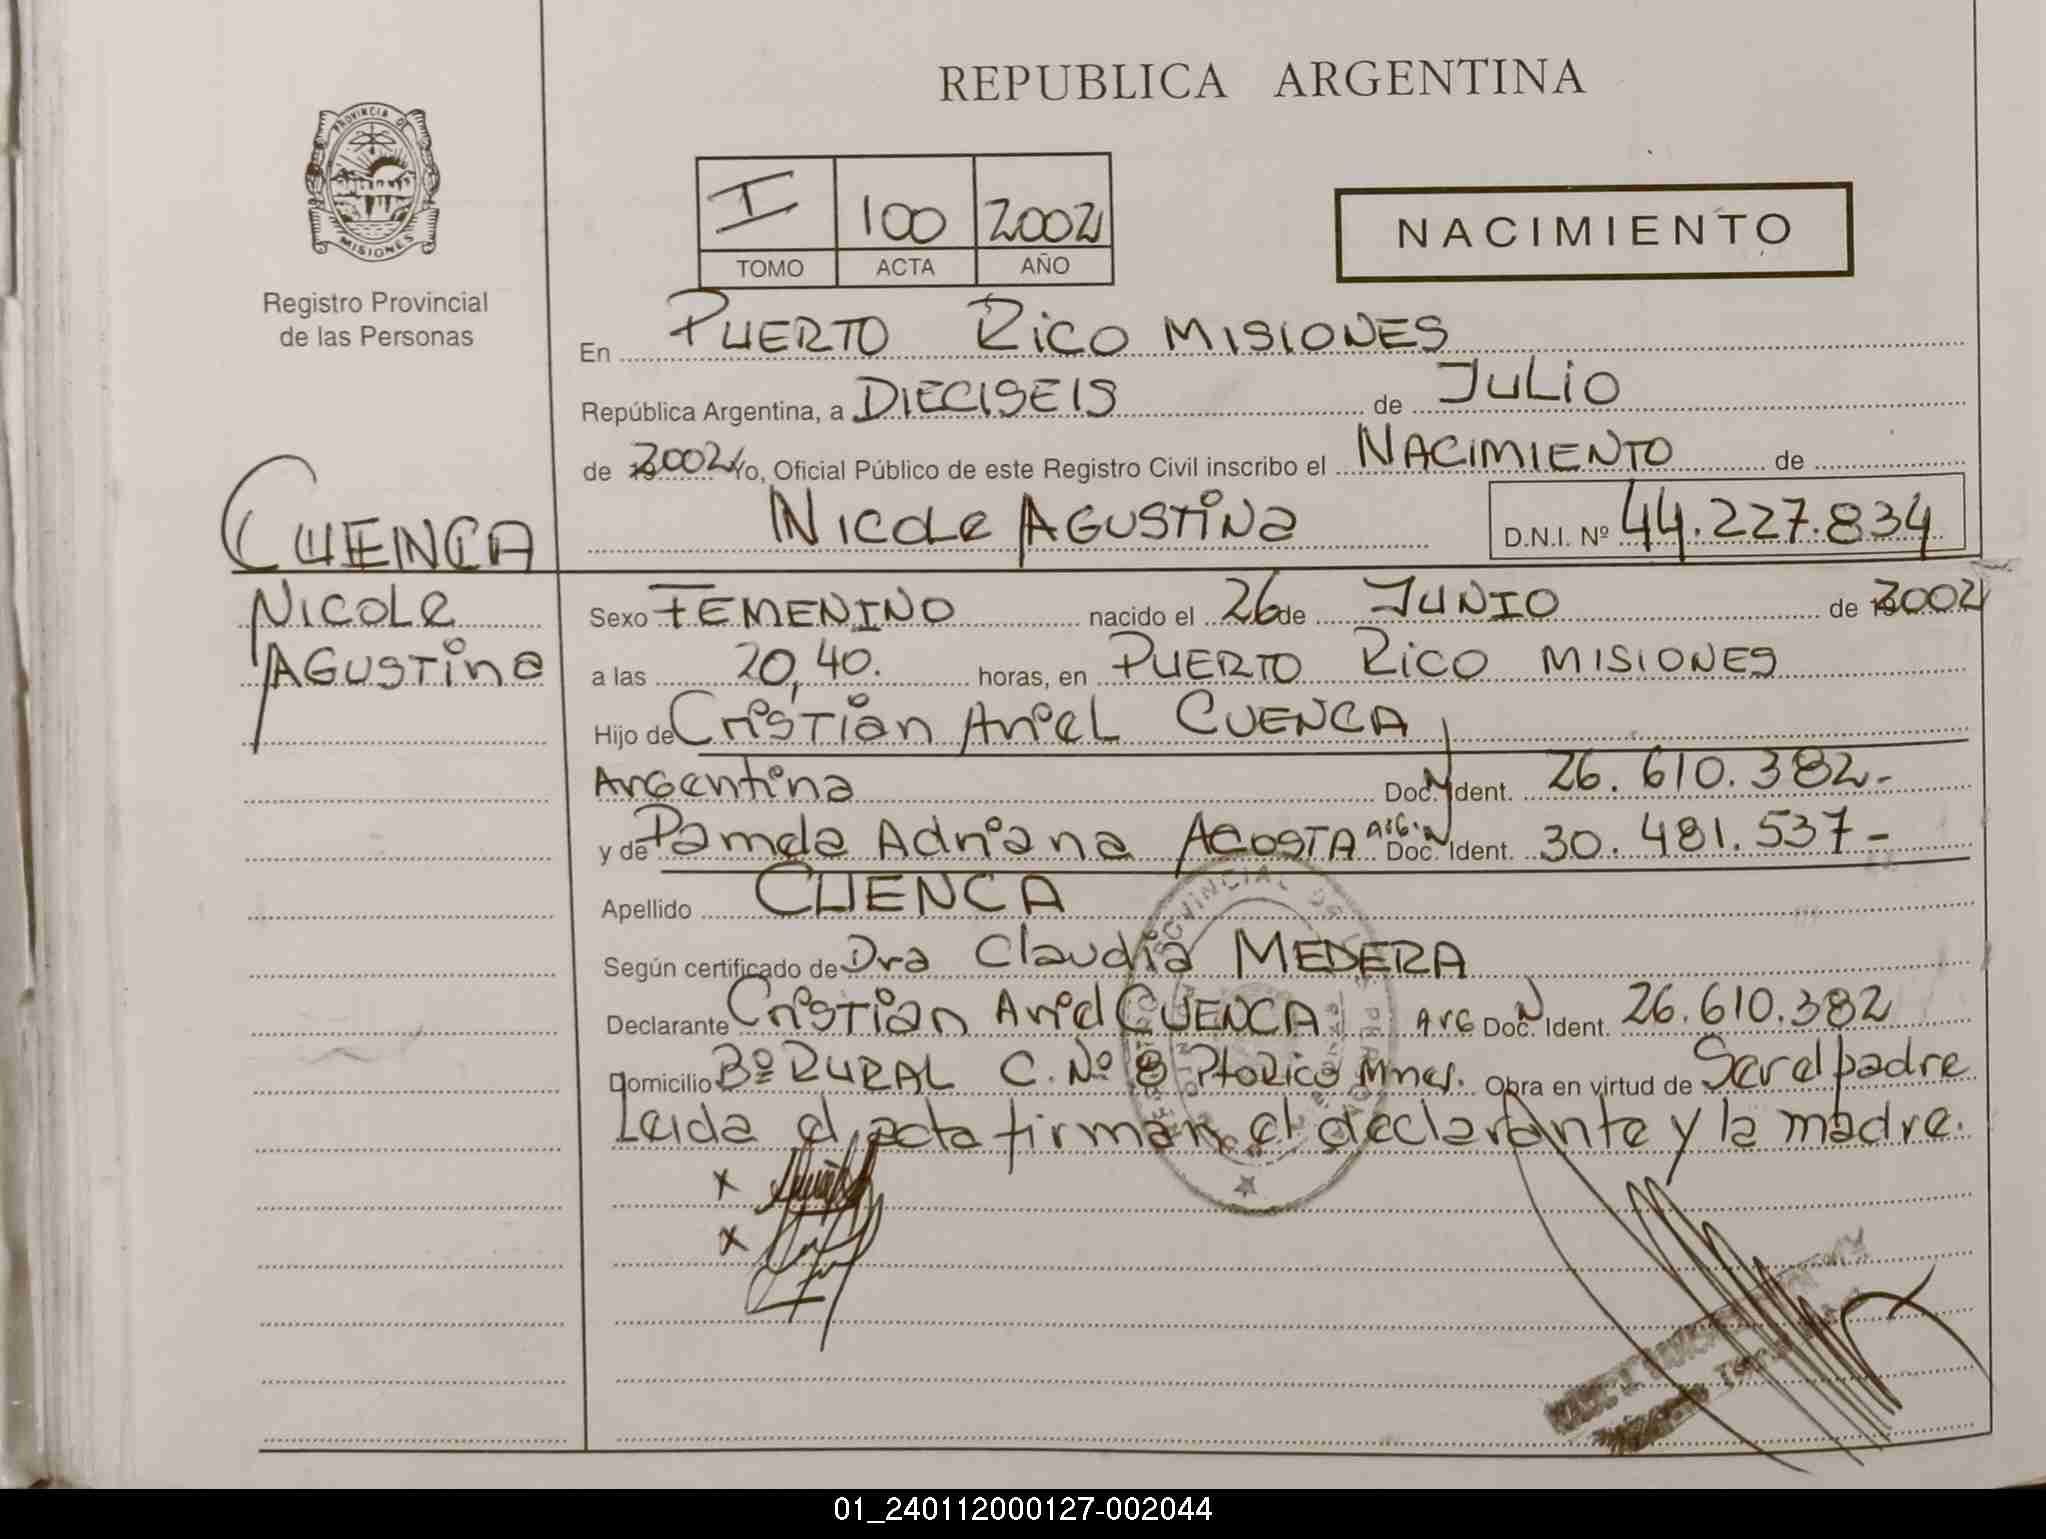 REPUBLICA ARGENTINA
PROVINCIA DE
MISIONES
Registro Provincial
de las Personas
I 100 2002
TOMO ACTA AÑO
NACIMIENTO
En PUERTO RICO MISIONES
República Argentina, a DIECISEIS de JULIO
de 2002 Yo, Oficial Público de este Registro Civil inscribo el NACIMIENTO de
NICOLE AGUSTINA D.N.I. Nº 44.227.834
CUENCA
NICOLE
AGUSTINA
Sexo FEMENINO nacido el 26 de JUNIO de 2002
a las 20,40. horas, en PUERTO RICO MISIONES
Hijo de Cristian Ariel CUENCA
Argentina Doc. N Ident. 26.610.382-
y de Pamela Adriana ACOSTA Arg. Doc. N Ident. 30.481.537-
Apellido CUENCA
Según certificado de Dra Claudia MEDERA
Declarante Cristian Ariel CUENCA Arg Doc. N Ident. 26.610.382
Domicilio Bº RURAL C. Nº 8 Pto Rico Mnes. Obra en virtud de Ser el padre
Leida el acta firman el declarante y la madre.
x
x
01_240112000127-002044